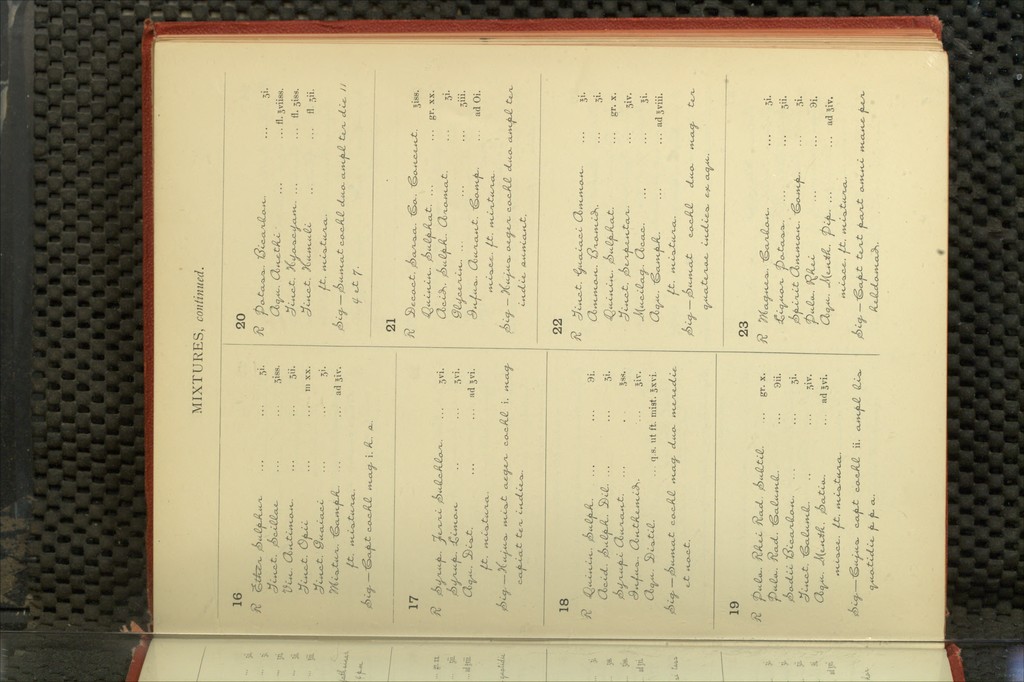 MIXTURES, continued.
16
R Ether Sulphur ... ... ʒi.
Tinct. Scillae ... ... ʒiss.
Vin Antimon ... ... ʒii.
Tinct. Opii ... ... m xx.
Tinct. Guaiaci ... ... ʒi.
Mistur. Camph. ... ... ad ℥iv.
ft. mistura.
Sig—Capt cochl mag i. h. s.
17
R Syrup. Ferri Subchlor. ... ʒvi.
Syrup. Limon ... ... ʒvi.
Aqu. Dist. ... ... ad ℥vi.
ft. mistura.
Sig—Hujus mist aeger cochl i. mag
capiat ter indies.
18
R Quinin. Sulph. ... ... ℈i.
Acid. Sulph. Dil. ... ... ʒi.
Syrupi Aurant. ... ... ℥ss.
Infus. Anthemid. ... ℥iv.
Aqu. Distil. ... q.s. ut ft. mist. ℥xvi.
Sig—Sumat cochl mag duo meredie
et noct.
19
R Pulv. Rhei Rad. Subtil. ... gr. x.
Pulv. Rad. Calumb. ... ℈ii.
Sodii Bicarbon. ... ... ʒi.
Tinct. Calumb. ... ... ʒiv.
Aqu. Menth. Sativ. ... ad ℥vi.
misce. ft. mistura.
Sig—Cujus capt cochl ii. ampl bis
quotidie p. p. a.
20
R Potass. Bicarbon ... ʒi.
Aqu. Anethi ... ... fl. ℥viiss.
Tinct. Hyoscyam. ... ... fl. ʒiss.
Tinct. Humuli ... ... fl. ʒii.
ft. mistura.
Sig—Sumat cochl duo ampl ter die 11
4 et 7.
21
R Decoct. Sarsa. Co. Concent. ℥iss.
Quinin. Sulphat. ... ... gr. xx.
Acid. Sulph. Aromat. ... ʒi.
Glycerin. ... ... ... ℥iii.
Infus. Aurant. Comp. ... ad Oi.
misce. ft. mistura.
Sig—Hujus aeger cochl duo ampl ter
indie sumiant.
22
R Tinct. Guaiaci Ammon. ... ʒi.
Ammon. Bromid. ... ʒi.
Quinin. Sulphat. ... gr. x.
Tinct. Serpentar. ... ʒiv.
Mucilag. Acac. ... ... ℥i.
Aqu. Camph. ... ... ad ℥viii.
ft. mistura.
Sig—Sumat cochl duo mag ter
quaterve indies ex aqu.
23
R Magnes. Carbon. ... ʒi.
Liquor Potass. ... ... ʒii.
Spirit Ammon. Comp. ... ʒi.
Pulv. Rhei ... ... ℈i.
Aqu. Menth. Pip. ... ... ad ℥iv.
misce. ft. mistura.
Sig—Capt tert part omni mane per
hebdomad.